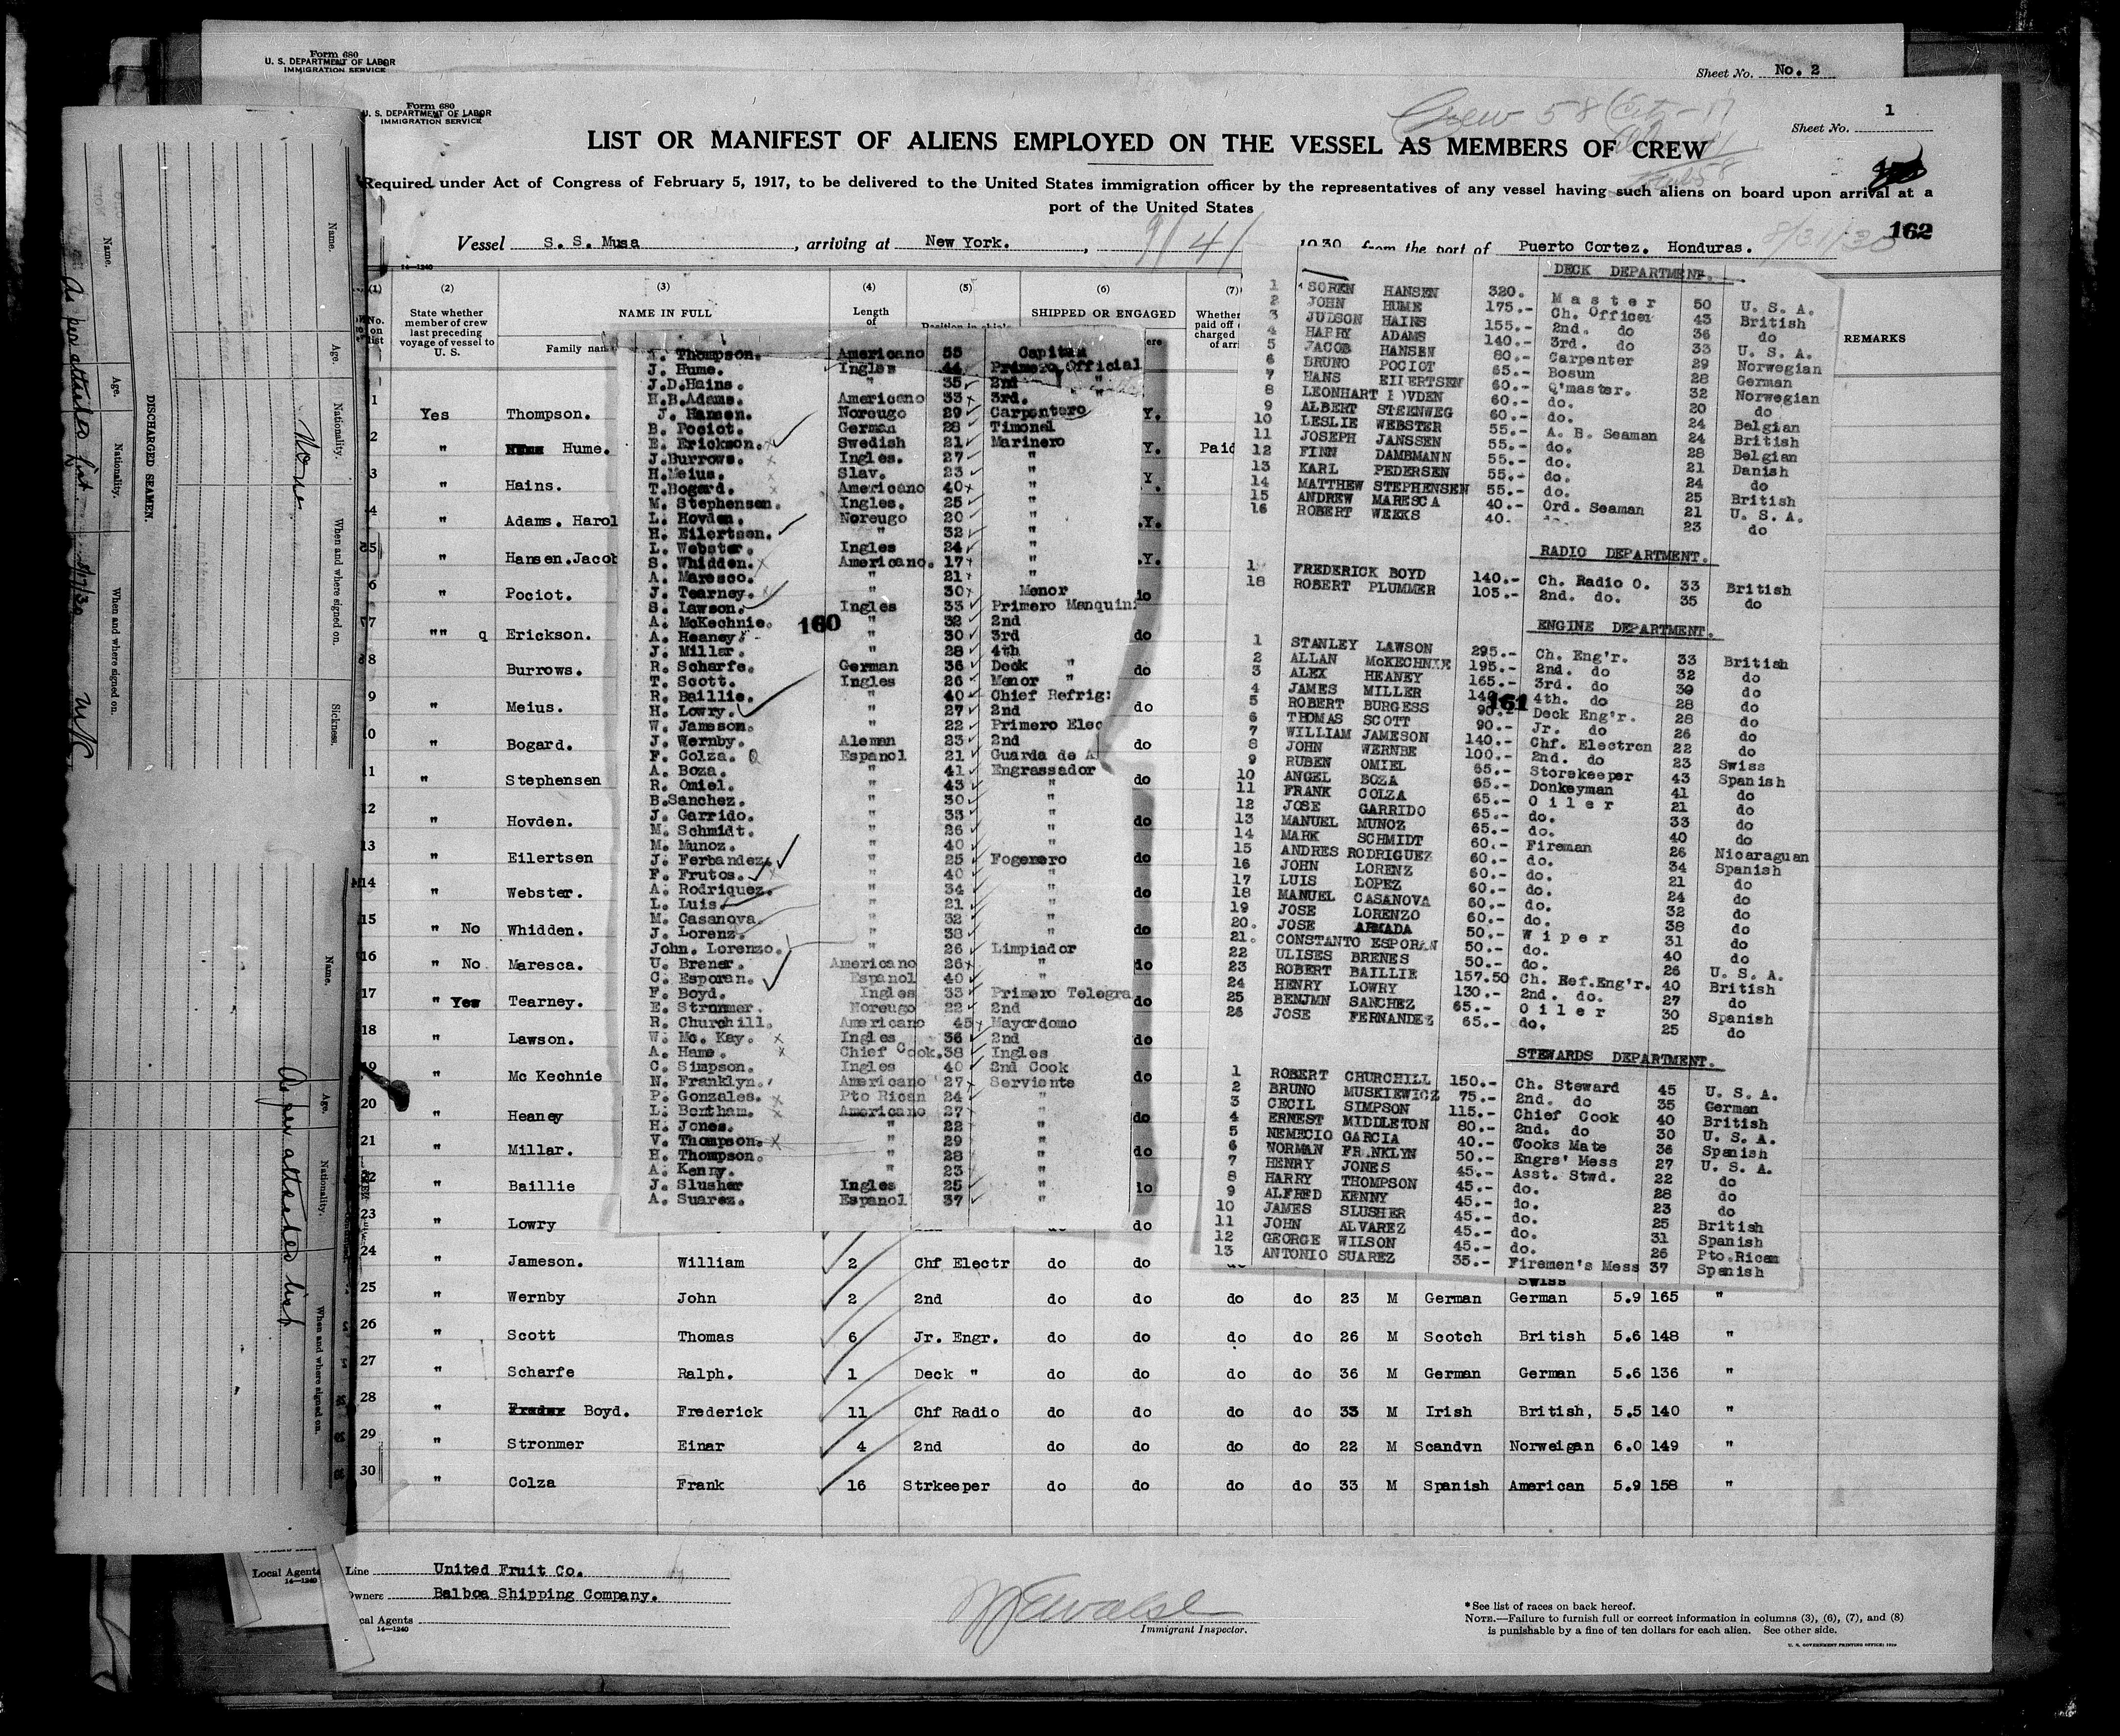 Form 680
U. S. DEPARTMENT OF LABOR
IMMIGRATION SERVICE
Sheet No. No. 2
Form 680
U. S. DEPARTMENT OF LABOR
IMMIGRATION SERVICE
Crew 58
1
Sheet No.
LIST OR MANIFEST OF ALIENS EMPLOYED ON THE VESSEL AS MEMBERS OF CREW
Required under Act of Congress of February 5, 1917, to be delivered to the United States immigration officer by the representatives of any vessel having such aliens on board upon arrival at a
port of the United States
Vessel S. S. Musa , arriving at New York. , 1930 from the port of Puerto Cortez. Honduras. 8/31/30
162
14—1240
(1) (2) (3) (4) (5) (6) (7)
No. on list
State whether member of crew last preceding voyage of vessel to U. S.
NAME IN FULL
Length of
SHIPPED OR ENGAGED
REMARKS
1 Yes Thompson.
2 " Hume. Paid
3 " Hains.
4 " Adams. Harol
5 " Hansen. Jacob
6 " Pociot. do
7 "" q Erickson. do
8 Burrows. do
9 " Meius. do
10 " Bogard. do
11 " Stephensen do
12 " Hovden. do
13 " Eilertsen do
14 " Webster. do
15 " No Whidden. do
16 " No Maresca. do
17 " Yes Tearney. do
18 " Lawson. do
19 " Mc Kechnie do
20 " Heaney do
21 " Millar. do
22 " Baillie do
23 " Lowry do do
24 " Jameson. William 2 Chf Electr do do
25 " Wernby John 2 2nd do do do do 23 M German Swiss German 5.9 165 "
26 " Scott Thomas 6 Jr. Engr. do do do do 26 M Scotch British 5.6 148 "
27 " Scharfe Ralph. 1 Deck " do do do do 36 M German German 5.6 136 "
28 " Boyd. Frederick 11 Chf Radio do do do do 33 M Irish British, 5.5 140 "
29 " Stronmer Einar 4 2nd do do do do 22 M Scandvn Norweigan 6.0 149 "
30 " Colza Frank 16 Strkeeper do do do do 33 M Spanish American 5.9 158 "
Thompson. Americano 55 Capitan
J. Hume. Ingles 44 Primero Official
J.D.Hains. " 35 2nd "
H.B.Adams. Americano 33 3rd.
J. Hansen. Noreugo 29 Carpentero
B. Pociot. German 28 Timonel
E. Erickson. Swedish 21 Marinero
J.Burrows. Ingles. 27 "
H.Meius. Slav. 23 "
T.Bogard. Americano 40 "
M. Stephensen. Ingles. 25 "
L. Hovden. Noreugo 20 "
H. Eilertsen. " 32 "
L. Webster. Ingles 24 "
S. Whidden. Americano. 17 "
A. Maresco. " 21 "
J. Tearney. " 30 Menor
S. Lawson. Ingles 33 Primero Manquini
A. McKechnie. " 32 2nd
160
A. Heaney. " 30 3rd
J. Millar. " 28 4th
R. Scharfe. German 36 Deck "
T. Scott. Ingles 26 Menor "
R. Baillie. " 40 Chief Refrig:
H. Lowry. " 27 2nd
W. Jameson. " 22 Primero Elec
J. Wernby. Aleman 23 2nd
F. Colza. Espanol 21 Guarda de A
A. Boza. " 41 Engrassador
R. Omiel. " 43 "
B.Sanchez. " 30 "
J. Garrido. " 33 "
M. Schmidt. " 26 "
M. Munoz. " 40 "
J. Ferbandez. " 25 Fogenero
F. Frutos. " 40 "
A. Rodriquez. " 34 "
L. Luis. " 21 "
M. Casanova. " 32 "
J. Lorenz. " 38 "
John. Lorenzo. " 26 Limpiador
U. Brener. Americano 26 "
C. Esporan. Espanol 40 "
F. Boyd. Ingles 33 Primero Telegra
E. Stronmer. Noreugo 22 2nd
R. Churchill. Americano 45 Mayordomo
W. Mc. Kay. Ingles 36 2nd
A. Hame. Chief Cook. 38 Ingles
C. Simpson. Ingles 40 2nd Cook
N. Franklyn. Americano 27 Serviente
P. Gonzales. Pto Rican 24 "
L. Bentham. Americano 27 "
H. Jones. " 22 "
V. Thompson. " 29 "
H. Thompson. " 28 "
A. Kenny. " 23 "
J. Slusher Ingles 25 "
A. Suarez. Espanol 37 "
DECK DEPARTMENT.
1 SOREN HANSEN 320. Master 50 U. S. A.
2 JOHN HUME 175.- Ch. Officer 43 British
3 JUDSON HAINS 155.- 2nd. do 36 do
4 HARRY ADAMS 140.- 3rd. do 33 U. S. A.
5 JACOB HANSEN 80.- Carpenter 29 Norwegian
6 BRUNO POCIOT 65.- Bosun 28 German
7 HANS EILERTSEN 60.- Q'master. 32 Norwegian
8 LEONHART HOVDEN 60.- do. 20 do
9 ALBERT STEENWEG 60.- do. 24 Belgian
10 LESLIE WEBSTER 55.- A. B. Seaman 24 British
11 JOSEPH JANSSEN 55.- do. 28 Belgian
12 FINN DAMBMANN 55.- do. 21 Danish
13 KARL PEDERSEN 55.- do. 24 do
14 MATTHEW STEPHENSEN 55.- do. 25 British
15 ANDREW MARESCA 40.- Ord. Seaman 21 U. S. A.
16 ROBERT WEEKS 40. 23 do
RADIO DEPARTMENT.
1 FREDERICK BOYD 140.- Ch. Radio O. 33 British
18 ROBERT PLUMMER 105.- 2nd. do. 35 do
ENGINE DEPARTMENT.
1 STANLEY LAWSON 295.- Ch. Eng'r. 33 British
2 ALLAN McKECHNIE 195.- 2nd. do 32 do
3 ALEX HEANEY 165.- 3rd. do 30 do
4 JAMES MILLER 140 4th. do 28 do
161
5 ROBERT BURGESS 90.- Deck Eng'r. 28 do
6 THOMAS SCOTT 90.- Jr. do 26 do
7 WILLIAM JAMESON 140.- Chf. Electron 22 do
8 JOHN WERNBE 100.- 2nd. do 23 Swiss
9 RUBEN OMIEL 65.- Storekeeper 43 Spanish
10 ANGEL BOZA 65.- Donkeyman 41 do
11 FRANK COLZA 65.- Oiler 21 do
12 JOSE GARRIDO 65.- do. 33 do
13 MANUEL MUNOZ 65.- do. 40 do
14 MARK SCHMIDT 60.- Fireman 26 Nicaraguan
15 ANDRES RODRIGUEZ 60.- do. 34 Spanish
16 JOHN LORENZ 60.- do. 21 do
17 LUIS LOPEZ 60.- do. 24 do
18 MANUEL CASANOVA 60.- do. 32 do
19 JOSE LORENZO 60.- do. 38 do
20. JOSE ARMADA 50.- Wiper 31 do
21. CONSTANTO ESPORAN 50.- do. 40 do
22 ULISES BRENES 50.- do. 26 U. S. A.
23 ROBERT BAILLIE 157.50 Ch. Ref.Eng'r. 40 British
24 HENRY LOWRY 130.- 2nd. do. 27 do
25 BENJMN SANCHEZ 65.- Oiler 30 Spanish
26 JOSE FERNANDEZ 65.- do. 25 do
STEWARDS DEPARTMENT.
1 ROBERT CHURCHILL 150.- Ch. Steward 45 U. S. A.
2 BRUNO MUSKIEWICZ 75.- 2nd. do 35 German
3 CECIL SIMPSON 115.- Chief Cook 40 British
4 ERNEST MIDDLETON 80.- 2nd. do 30 U. S. A.
5 NEMECIO GARCIA 40.- Cooks Mate 36 Spanish
6 NORMAN FRANKLYN 50.- Engrs' Mess 27 U. S. A.
7 HENRY JONES 45.- Asst. Stwd. 22 do
8 HARRY THOMPSON 45.- do. 28 do
9 ALFRED KENNY 45.- do. 23 do
10 JAMES SLUSHER 45.- do. 25 British
11 JOHN ALVAREZ 45.- do. 31 Spanish
12 GEORGE WILSON 45.- do. 26 Pto.Rican
13 ANTONIO SUAREZ 35.- Firemen's Mess 37 Spanish
Name. Age. Nationality. When and where signed on. Sickness.
None
DISCHARGED SEAMEN.
Name. Age. Nationality. When and where signed on.
As per attached list
Name. Age. Nationality. When and where signed on.
As per attached list
Local Agents
14—1240
Line United Fruit Co.
Owners Balboa Shipping Company.
Local Agents
14—1240
Immigrant Inspector.
* See list of races on back hereof.
NOTE.—Failure to furnish full or correct information in columns (3), (6), (7), and (8)
is punishable by a fine of ten dollars for each alien. See other side.
U. S. GOVERNMENT PRINTING OFFICE: 1929